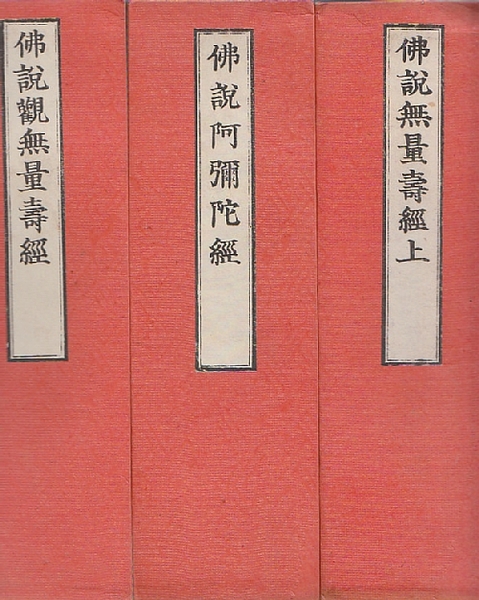 佛說無量壽經上
佛說阿彌陀經
佛說觀無量壽經